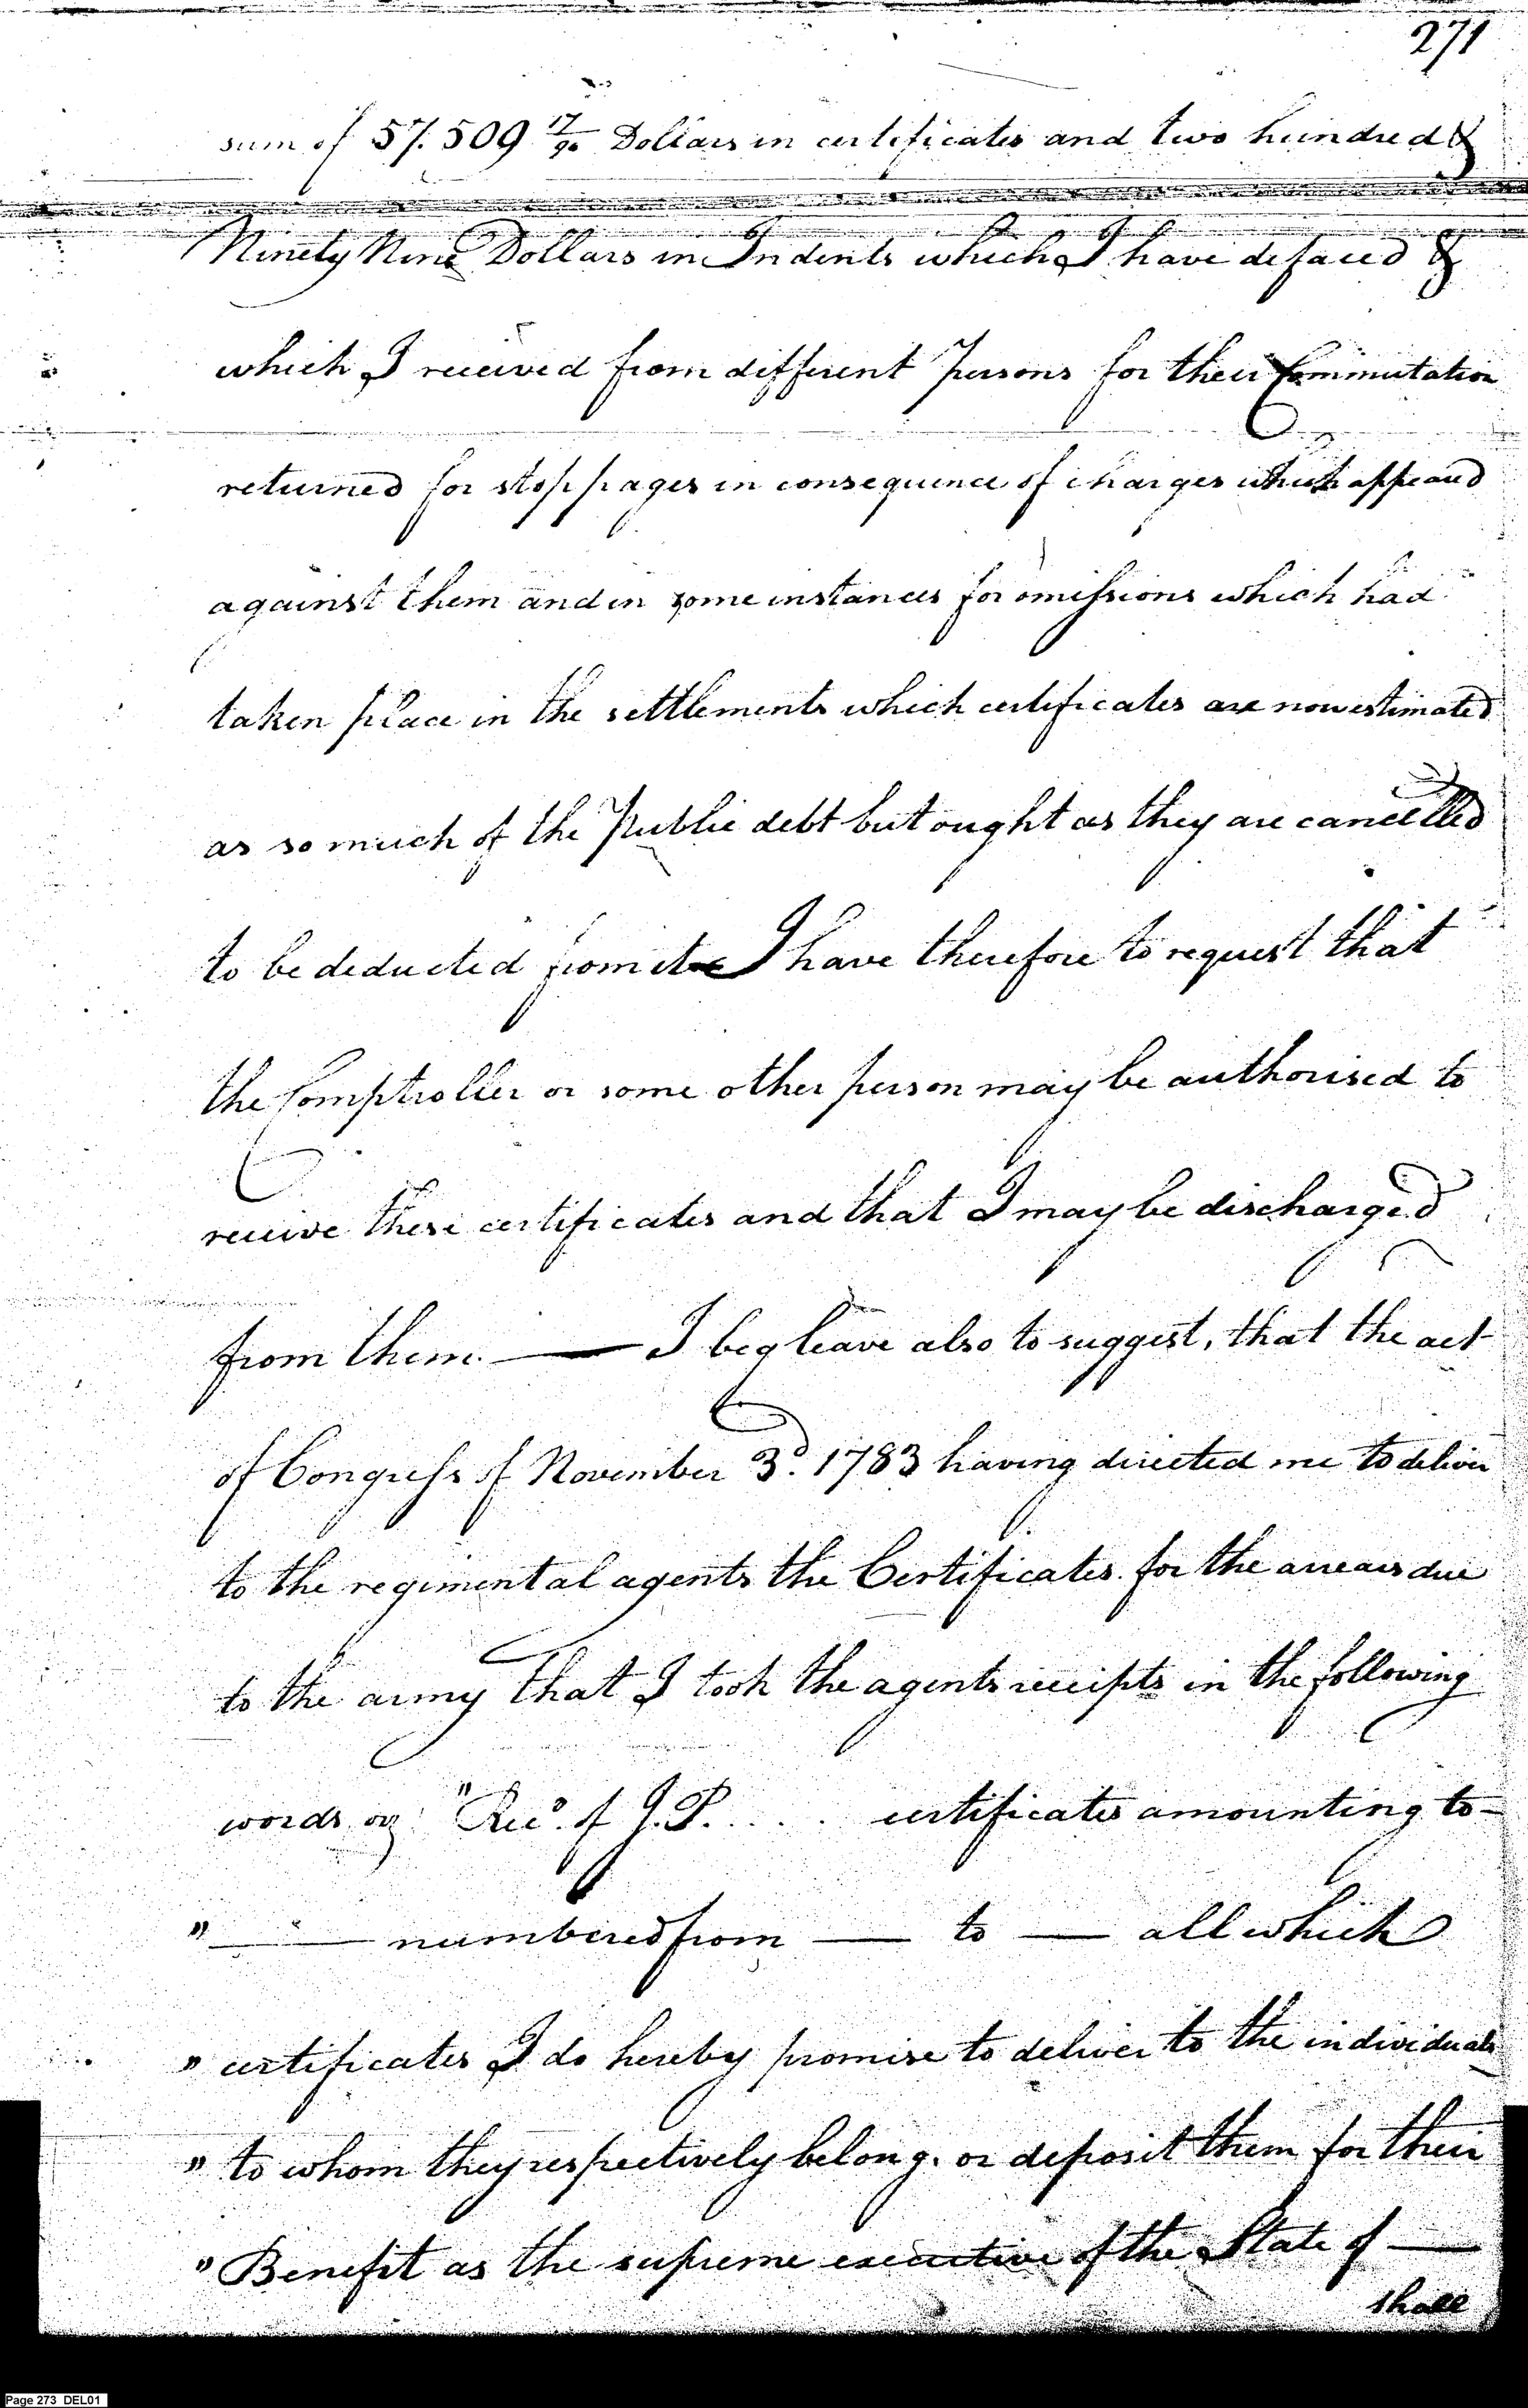 271
sum of 57.509 17/90 Dollars in certificates and two hundred &
Ninety Nine Dollars in Indents which I have defaced &
which I received from different Persons for their Commutation
returned for stoppages in consequence of charges which appeared
against them and in some instances for omissions which had
taken place in the settlements which certificates are now estimated
as so much of the Public debt but ought as they are cancelled
to be deducted from it — I have therefore to request that
the Comptroller or some other person may be authorised to
receive these certificates and that I may be discharged
from them. — I beg leave also to suggest, that the act
of Congress of November 3d. 1783 having directed me to deliver
to the regimental agents the Certificates for the arrears due
to the army that I took the agents receipts in the following
words "Recd. of J.P. . . . . certificates amounting to —
" — numbered from — to — all which
" certificates I do hereby promise to deliver to the individuals
" to whom they respectively belong. or deposit them for their
" Benefit as the supreme executive of the State of —
shall
Page 273 DEL01